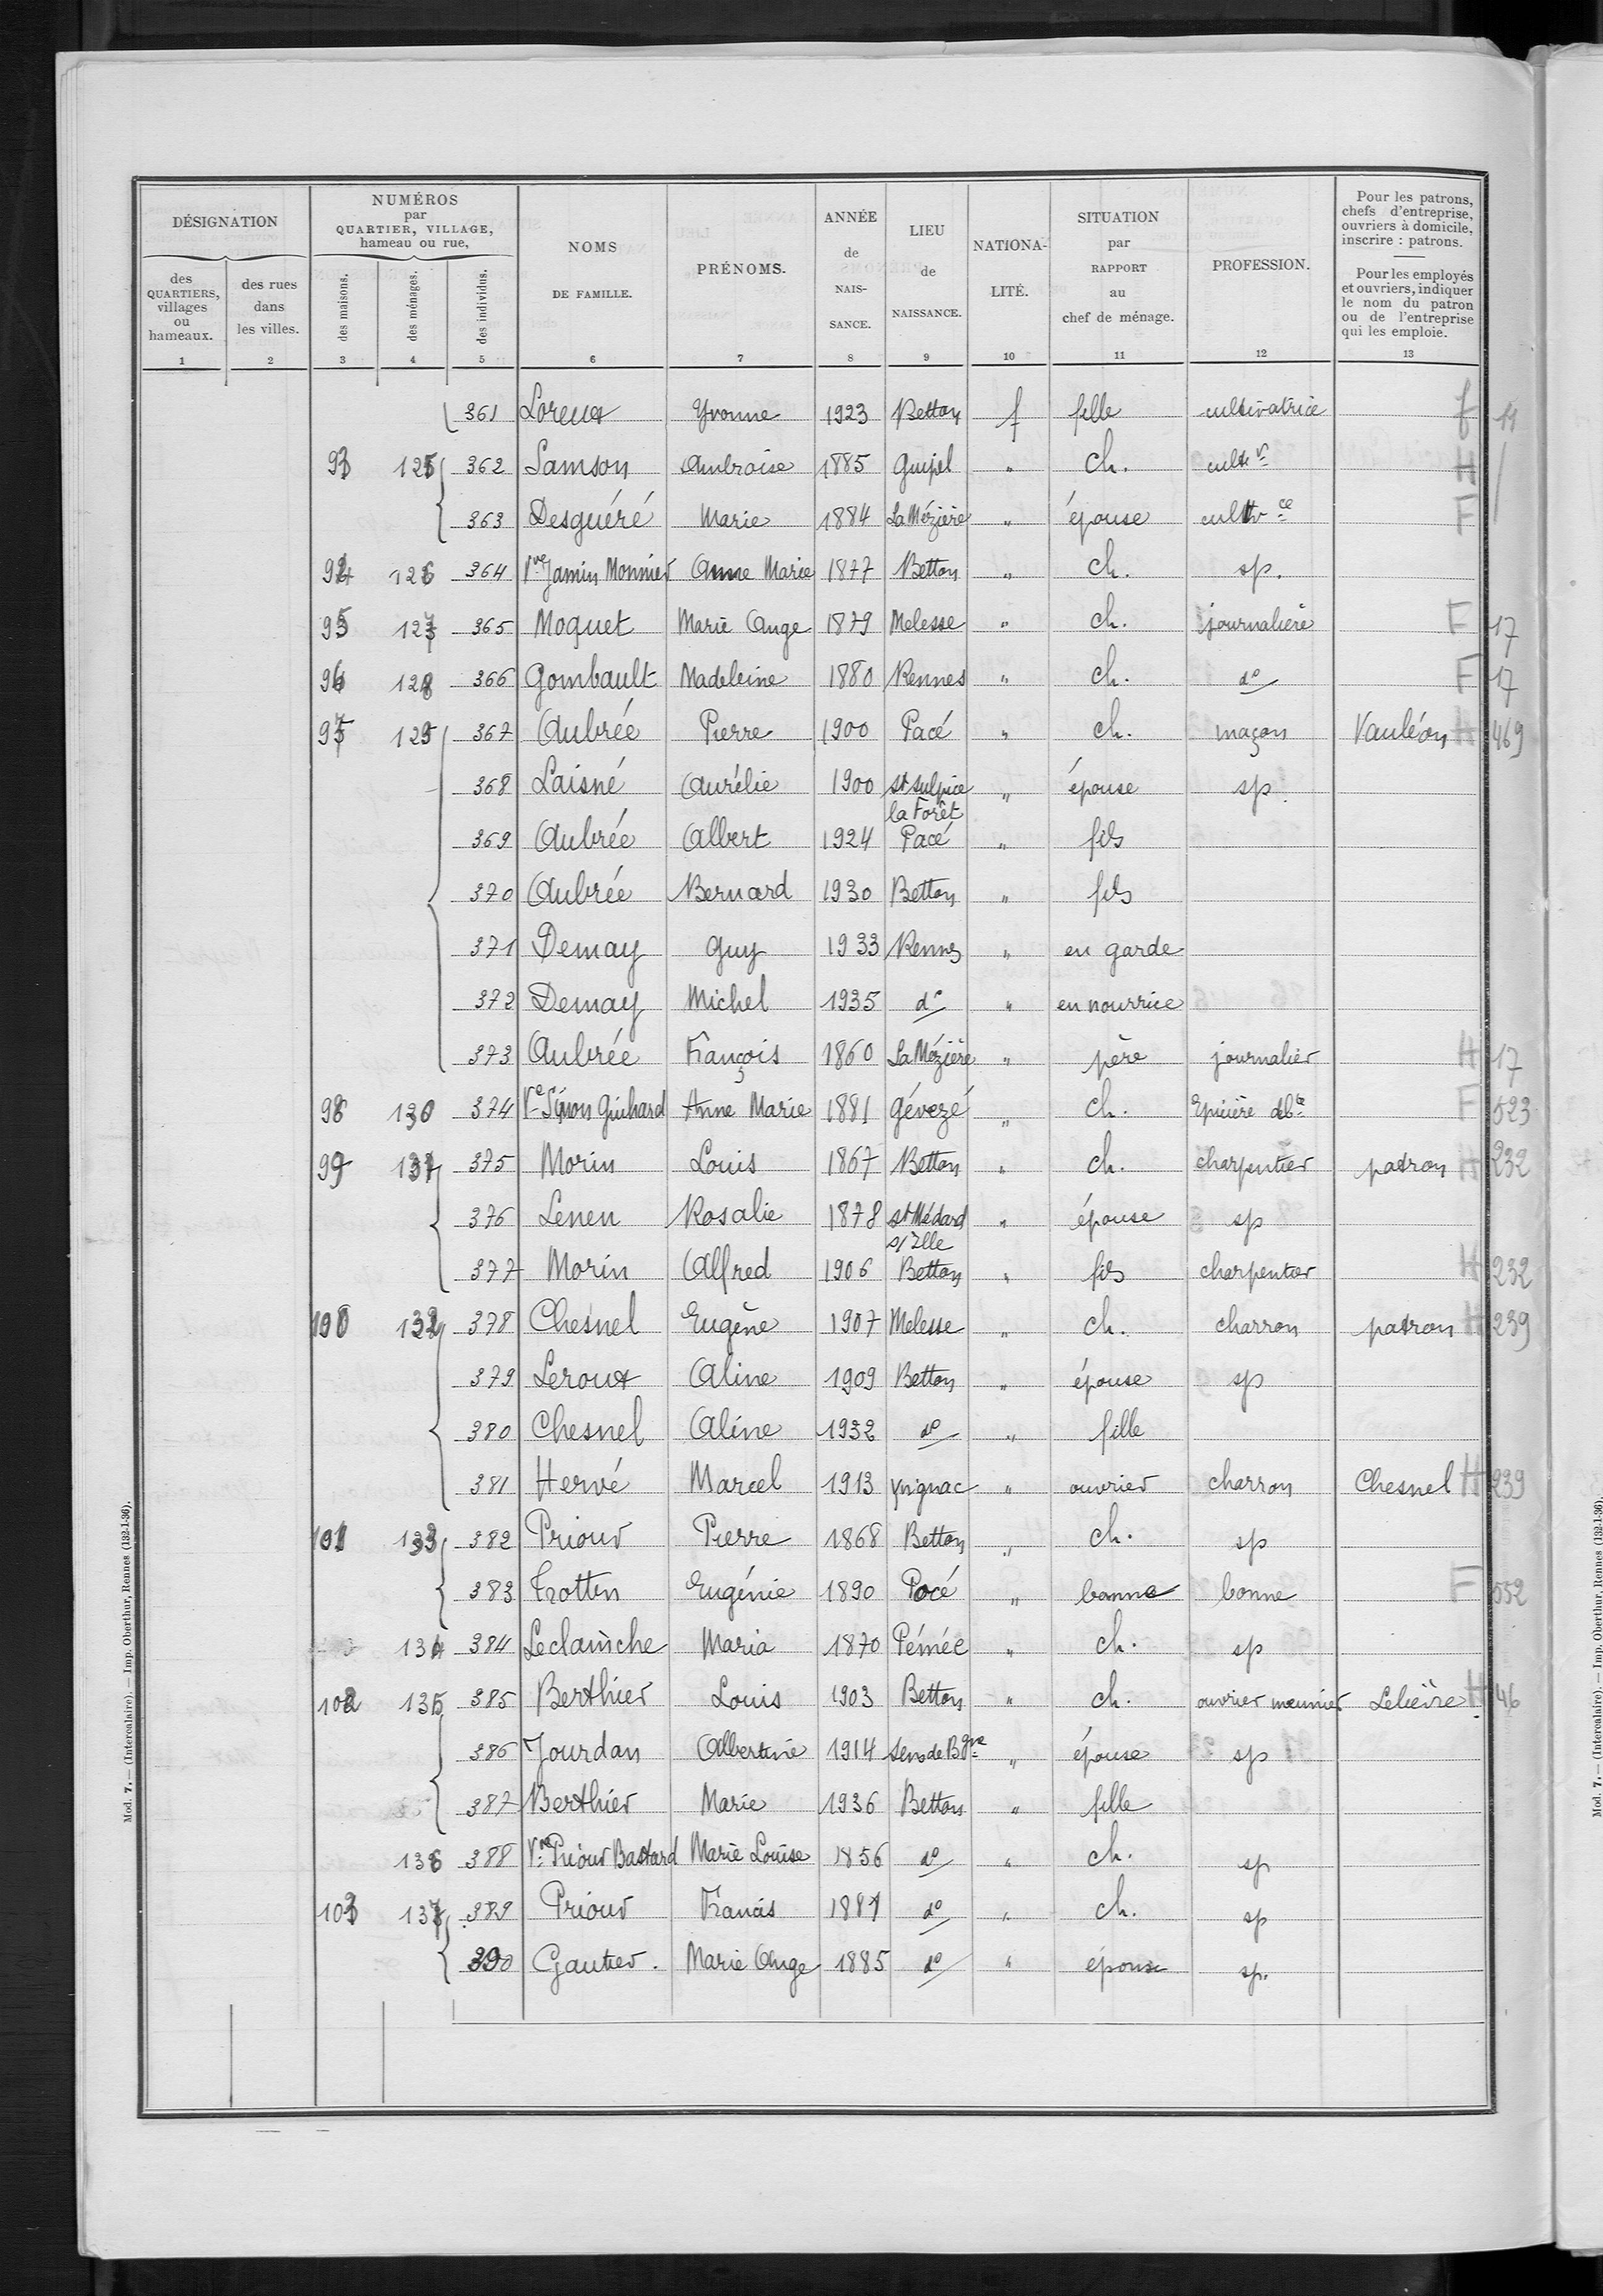 DÉSIGNATION
des QUARTIERS, villages ou hameaux.
des rues dans les villes.
NUMÉROS par QUARTIER, VILLAGE, hameau ou rue,
des maisons.
des ménages.
des individus.
NOMS DE FAMILLE.
PRÉNOMS.
ANNÉE de NAIS-SANCE.
LIEU de NAISSANCE.
NATIONA-LITÉ.
SITUATION par RAPPORT au chef de ménage.
PROFESSION.
Pour les patrons, chefs d'entreprise, ouvriers à domicile, inscrire : patrons.
Pour les employés et ouvriers, indiquer le nom du patron ou de l'entreprise qui les emploie.
1 2 3 4 5 6 7 8 9 10 11 12 13
361 Loreux Yvonne 1923 Betton f fille cultivatrice f 11
93 125 362 Samson Ambroise 1885 Guipel " ch. cultr H
363 Desguéré Marie 1884 La Mézière " épouse cultvce F
94 126 364 Vve Jamin Monnier Anne Marie 1877 Betton " ch. sp.
95 127 365 Moquet Marie Ange 1879 Melesse " ch. journalière F 17
96 128 366 Gombault Madeleine 1880 Rennes " ch. do F 17
97 129 367 Aubrée Pierre 1900 Pacé " ch. maçon Vauléon H 469
368 Laisné Aurélie 1900 St Sulpice la Forêt " épouse sp.
369 Aubrée Albert 1924 Pacé " fils
370 Aubrée Bernard 1930 Betton " fils
371 Demay Guy 1933 Rennes " en garde
372 Demay Michel 1935 do " en nourrice
373 Aubrée François 1860 La Mézière " père journalier H 17
98 130 374 Ve Simon Guihard Anne Marie 1881 Gévezé " ch. Epicière dbte F 523
99 131 375 Morin Louis 1867 Betton " ch. charpentier patron H 232
376 Lenen Rosalie 1878 St Médard s/ Ille " épouse sp
377 Morin Alfred 1906 Betton " fils charpentier H 232
100 132 378 Chesnel Eugène 1907 Melesse " ch. charron patron H 239
379 Leroux Aline 1909 Betton " épouse sp
380 Chesnel Aline 1932 do " fille
381 Hervé Marcel 1913 Yvignac " ouvrier charron Chesnel H 239
101 133 382 Priour Pierre 1868 Betton " ch. sp
383 Trotten Eugénie 1890 Pocé " bonne bonne F 552
134 384 Leclainche Maria 1870 " ch. sp
102 135 385 Berthier Louis 1903 Betton " ch. ouvrier meunier Lelièvre H 46
386 Jourdan Albertine 1914 Sens de Bgne " épouse sp
387 Berthier Marie 1936 Betton " fille
136 388 Vve Priour Battard Marie Louise 1856 do " ch. sp
103 137 389 Priour Francis 1881 do " ch. sp
390 Gautier. Marie Ange 1885 do " épouse sp.
Mod. 7. — (Intercalaire). — Imp. Oberthur, Rennes (132-1-36).
Mod. 7. — (Intercalaire). — Imp. Oberthur, Rennes (132-1-36).